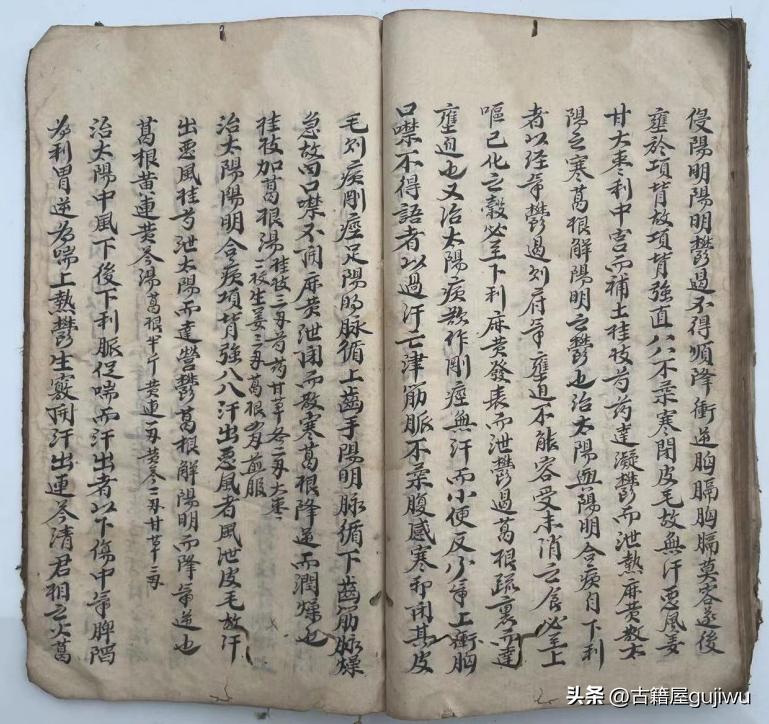 侵陽明陽明鬱過不得順降衝逆胸膈胸膈莫容遂後
壅於項背故項背強直八八不柔寒閉皮毛故無汗惡風姜
甘大棗利中宮而補土桂枝芍药達凝鬱而泄熱麻黄散太
陽之寒葛根解陽明之鬱也治太陽與陽明合疾自下利
者以经氣鬱過刘府氣壅迫不能容受未消之食必至上
嘔已化之穀必至下利麻黄發表而泄鬱過葛根疏裏而達
壅迫也又治太陽疾欲作剛痙無汗而小便反少氣上衝胸
口噤不得語者以過汗亡津筋脈不柔腹感寒邪闭其皮
毛刘疾剛痙足陽明脉循上齒手陽明脉循下齒筋脉燥
急故而口噤不闭麻黄泄闭而散寒葛根降逆而潤燥也
桂枝加葛根湯桂枝三刄芍药甘草各二刄大棗
十二枚生姜三刄葛根四刄煎服
治太陽陽明合疾項背強八八汗出惡風者風泄皮毛故汗
出惡風桂芍泄太陽而達營鬱葛根解陽明而降氣逆也
葛根黄連黄芩湯葛根半斤黄連一刄黄芩二刄甘草二刄
治太陽中風下後下利脈促喘而汗出者以下傷中氣脾陷
為利胃逆為喘上熱鬱生竅開汗出連芩清君相之火葛
头条 @古籍屋gujiwu